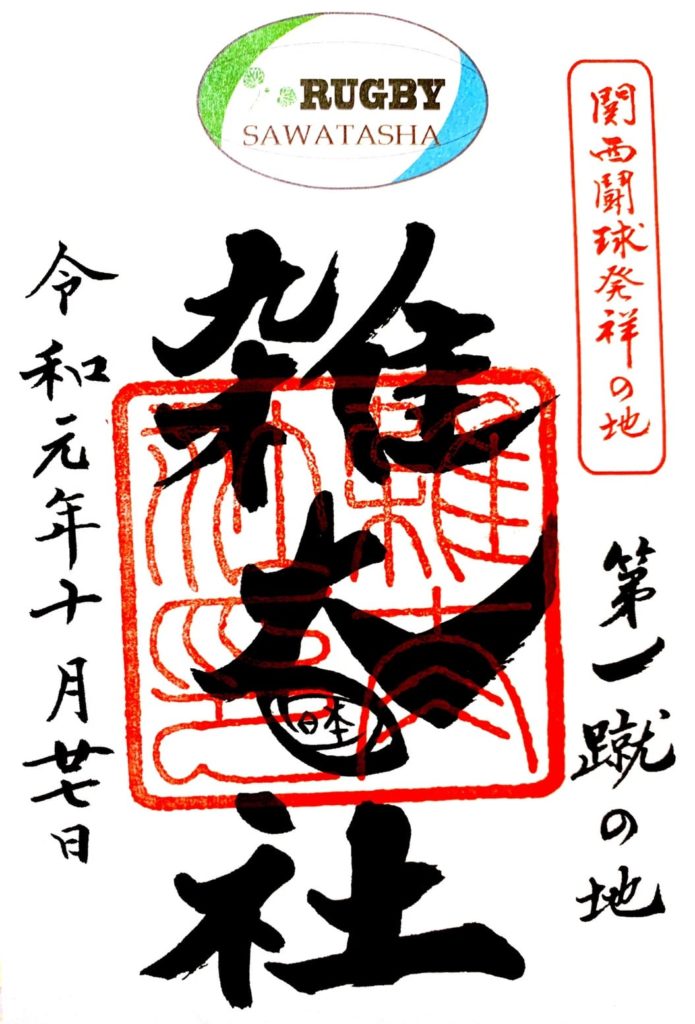 RUGBY
SAWATASHA
関西闘球発祥の地
第一蹴の地
雑太社
日本
雑太
社印
令和元年十月廿七日